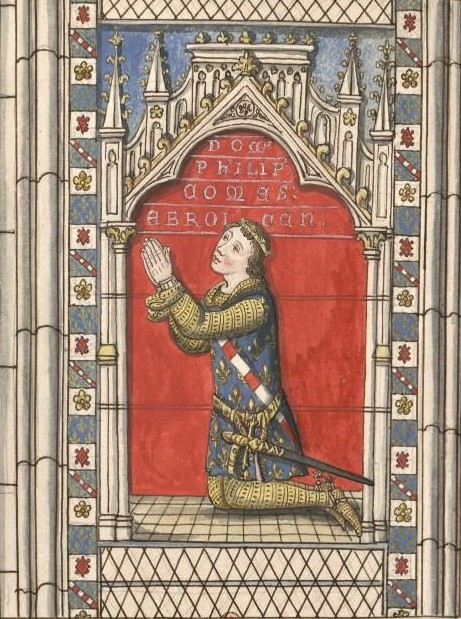 DOM
PHILIP
COMES
EBROI CEN: